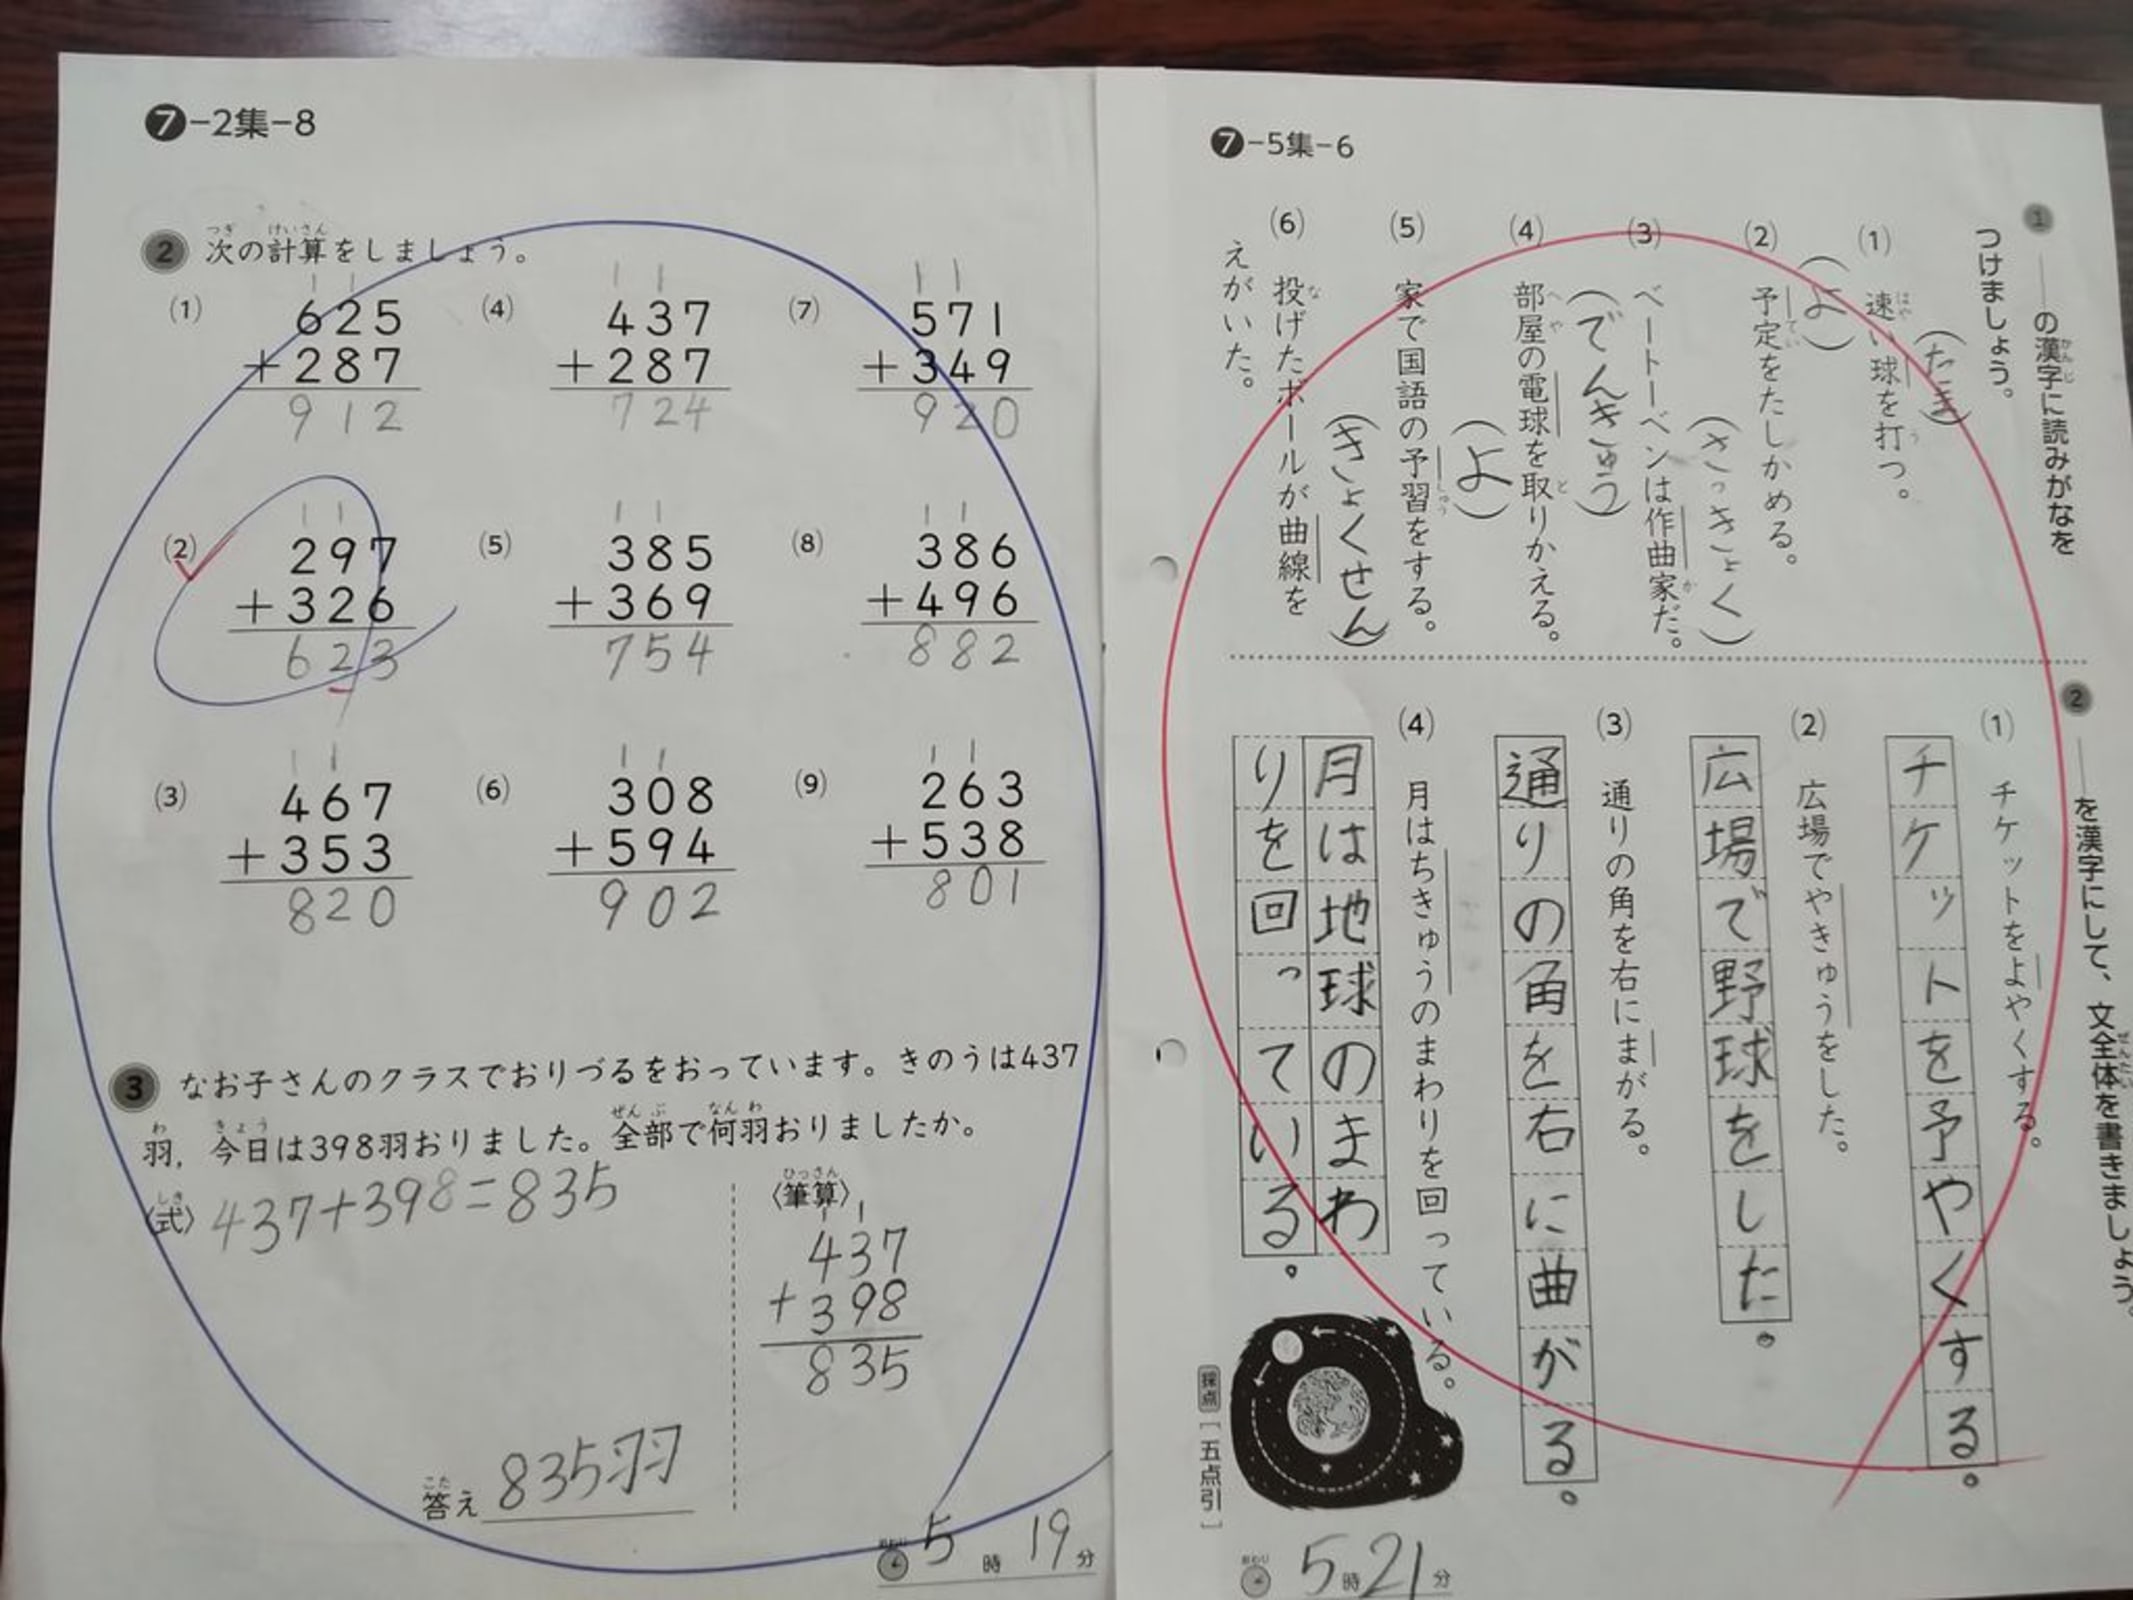 ❼-2集-8
❷ 次の計算をしましょう。
つぎ けいさん
(1)
1 1
625
+287
912
(2)
1 1
297
+326
623
(3)
1 1
467
+353
820
(4)
1 1
437
+287
724
(5)
1 1
385
+369
754
(6)
1 1
308
+594
902
(7)
1 1
571
+349
920
(8)
1 1
386
+496
882
(9)
1 1
263
+538
801
❸ なお子さんのクラスでおりづるをおっています。きのうは437
わ きょう ぜんぶ なんわ
羽，今日は398羽おりました。全部で何羽おりましたか。
しき
〈式〉 437+398=835
ひっさん
〈筆算〉
1 1
437
+398
835
こた
答え 835羽
おわり 5時 19分
❼-5集-6
❶ ──の漢字に読みがなを
かんじ
つけましょう。
(1) 速い球を打つ。
はや う
(たま)
(2) 予定をたしかめる。
てい
(よ)
(3) ベートーベンは作曲家だ。
か
(さっきょく)
(4) 部屋の電球を取りかえる。
へや と
(でんきゅう)
(5) 家で国語の予習をする。
しゅう
(よ)
(6) 投げたボールが曲線を
な
えがいた。
(きょくせん)
❷ ──を漢字にして、文全体を書きましょう。
ぜんたい
(1) チケットをよやくする。
チケットを予やくする。
(2) 広場でやきゅうをした。
広場で野球をした。
(3) 通りの角を右にまがる。
通りの角を右に曲がる。
(4) 月はちきゅうのまわりを回っている。
月は地球のまわ
りを回っている。
採点［五点引］
おわり 5時21分